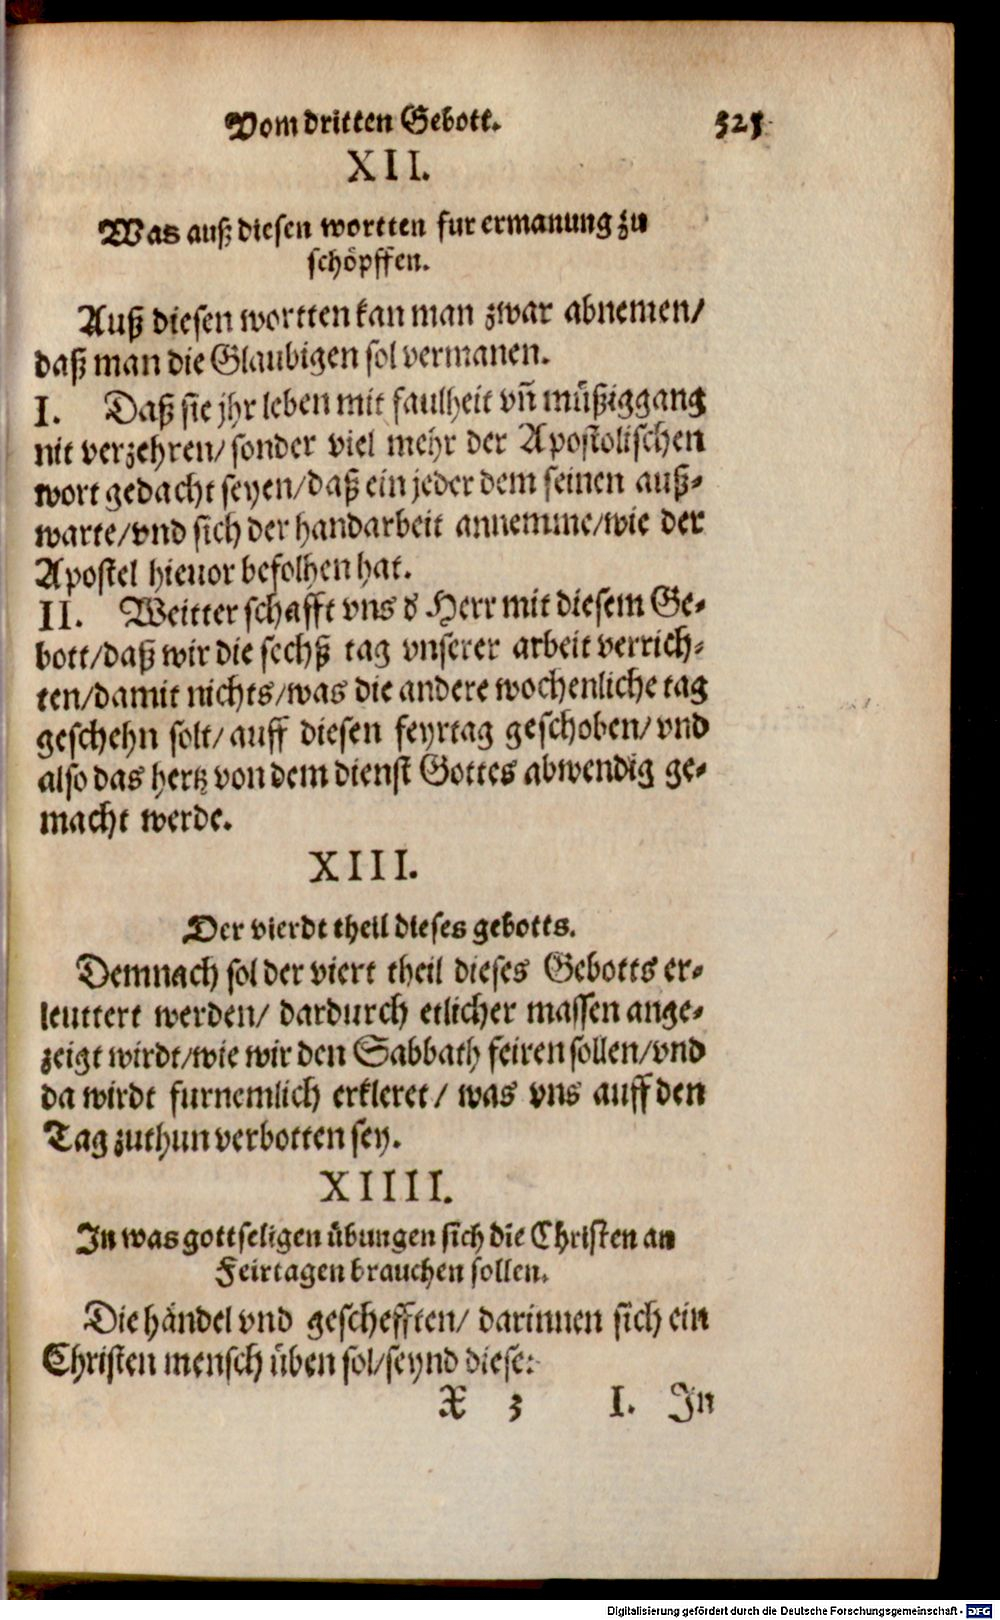 Vom dritten Gebott. 325
XII.
Was auß diesen wortten fur ermanung zu
schöpffen.
Auß diesen wortten kan man zwar abnemen/
daß man die Glaubigen sol vermanen.
I. Daß sie jhr leben mit faulheit vñ müßiggang
nit verzehren/ sonder viel mehr der Apostolischen
wort gedacht seyen/daß ein jeder dem seinen auß-
warte/vnd sich der handarbeit annemme/wie der
Apostel hieuor befolhen hat.
II. Weitter schafft vns d Herr mit diesem Ge-
bott/daß wir die sechß tag vnserer arbeit verrich-
ten/damit nichts/was die andere wochenliche tag
geschehn solt/ auff diesen feyrtag geschoben/ vnd
also das hertz von dem dienst Gottes abwendig ge-
macht werde.
XIII.
Der vierdt theil dieses gebotts.
Demnach sol der viert theil dieses Gebotts er-
leuttert werden/ dardurch etlicher massen ange-
zeigt wirdt/wie wir den Sabbath feiren sollen/vnd
da wirdt furnemlich erkleret/ was vns auff den
Tag zuthun verbotten sey.
XIIII.
In was gottseligen übungen sich die Christen an
Feirtagen brauchen sollen.
Die händel vnd geschefften/ darinnen sich ein
Christen mensch üben sol/seynd diese:
X 3 I. In
Digitalisierung gefördert durch die Deutsche Forschungsgemeinschaft - DFG